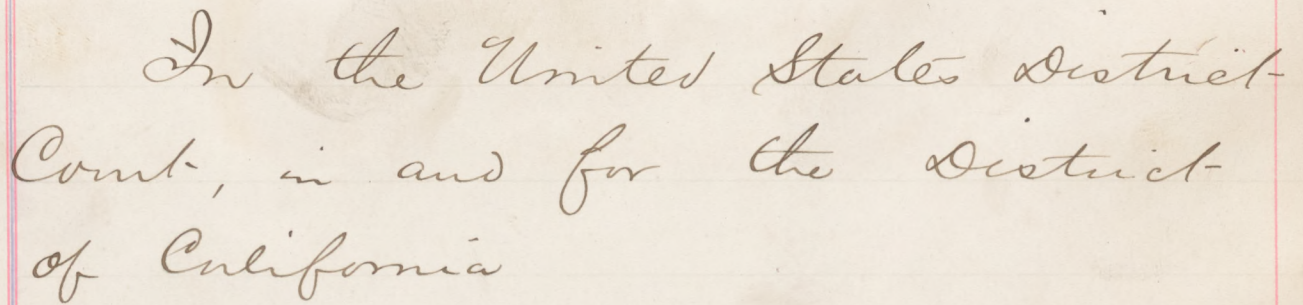 In the United States District
Court, in and for the District
of California